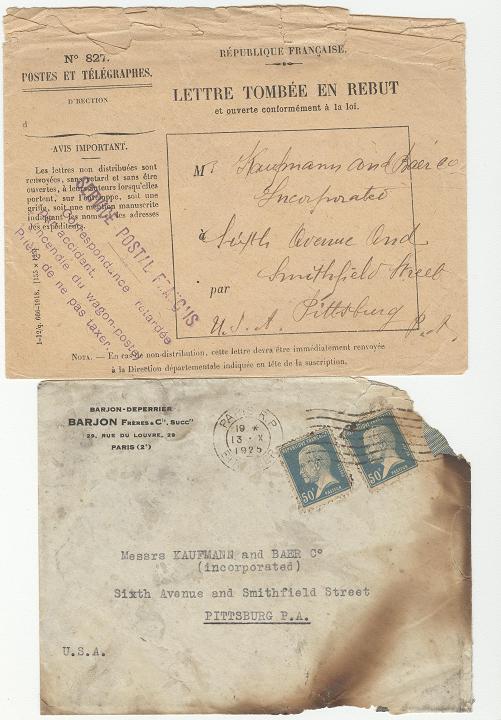 Nº 827.
POSTES ET TÉLÉGRAPHES.
DIRECTION
d
AVIS IMPORTANT.
Les lettres non distribuées sont
renvoyées, sans retard et sans être
ouvertes, à leurs auteurs lorsqu'elles
portent, sur l'enveloppe, soit une
griffe, soit une mention manuscrite
indiquant les noms et les adresses
des expéditeurs.
RÉPUBLIQUE FRANÇAISE.
LETTRE TOMBÉE EN REBUT
et ouverte conformément à la loi.
M Kaufmann and Baer Co
Incorporated
à Sixth Avenue and
Smithfield Street
par Pittsburg
U.S.A. P.A.
SERVICE POSTAL FRANÇAIS
Correspondance retardée
par accident.
Incendie du wagon-postal
Prière de ne pas taxer.
NOTA. — En cas de non-distribution, cette lettre devra être immédiatement renvoyée
à la Direction départementale indiquée en tête de la suscription.
BARJON-DEPERRIER
BARJON FRÈRES & Cie, Succrs
29, RUE DU LOUVRE, 29
PARIS (2e)
PARIS R.P.
19 *
13 - X
1925
RÉPUBLIQUE FRANÇAISE
50c
PASTEUR
RÉPUBLIQUE FRANÇAISE
50c
PASTEUR
Messrs KAUFMANN and BAER Co
(incorporated)
Sixth Avenue and Smithfield Street
PITTSBURG P.A.
U.S.A.